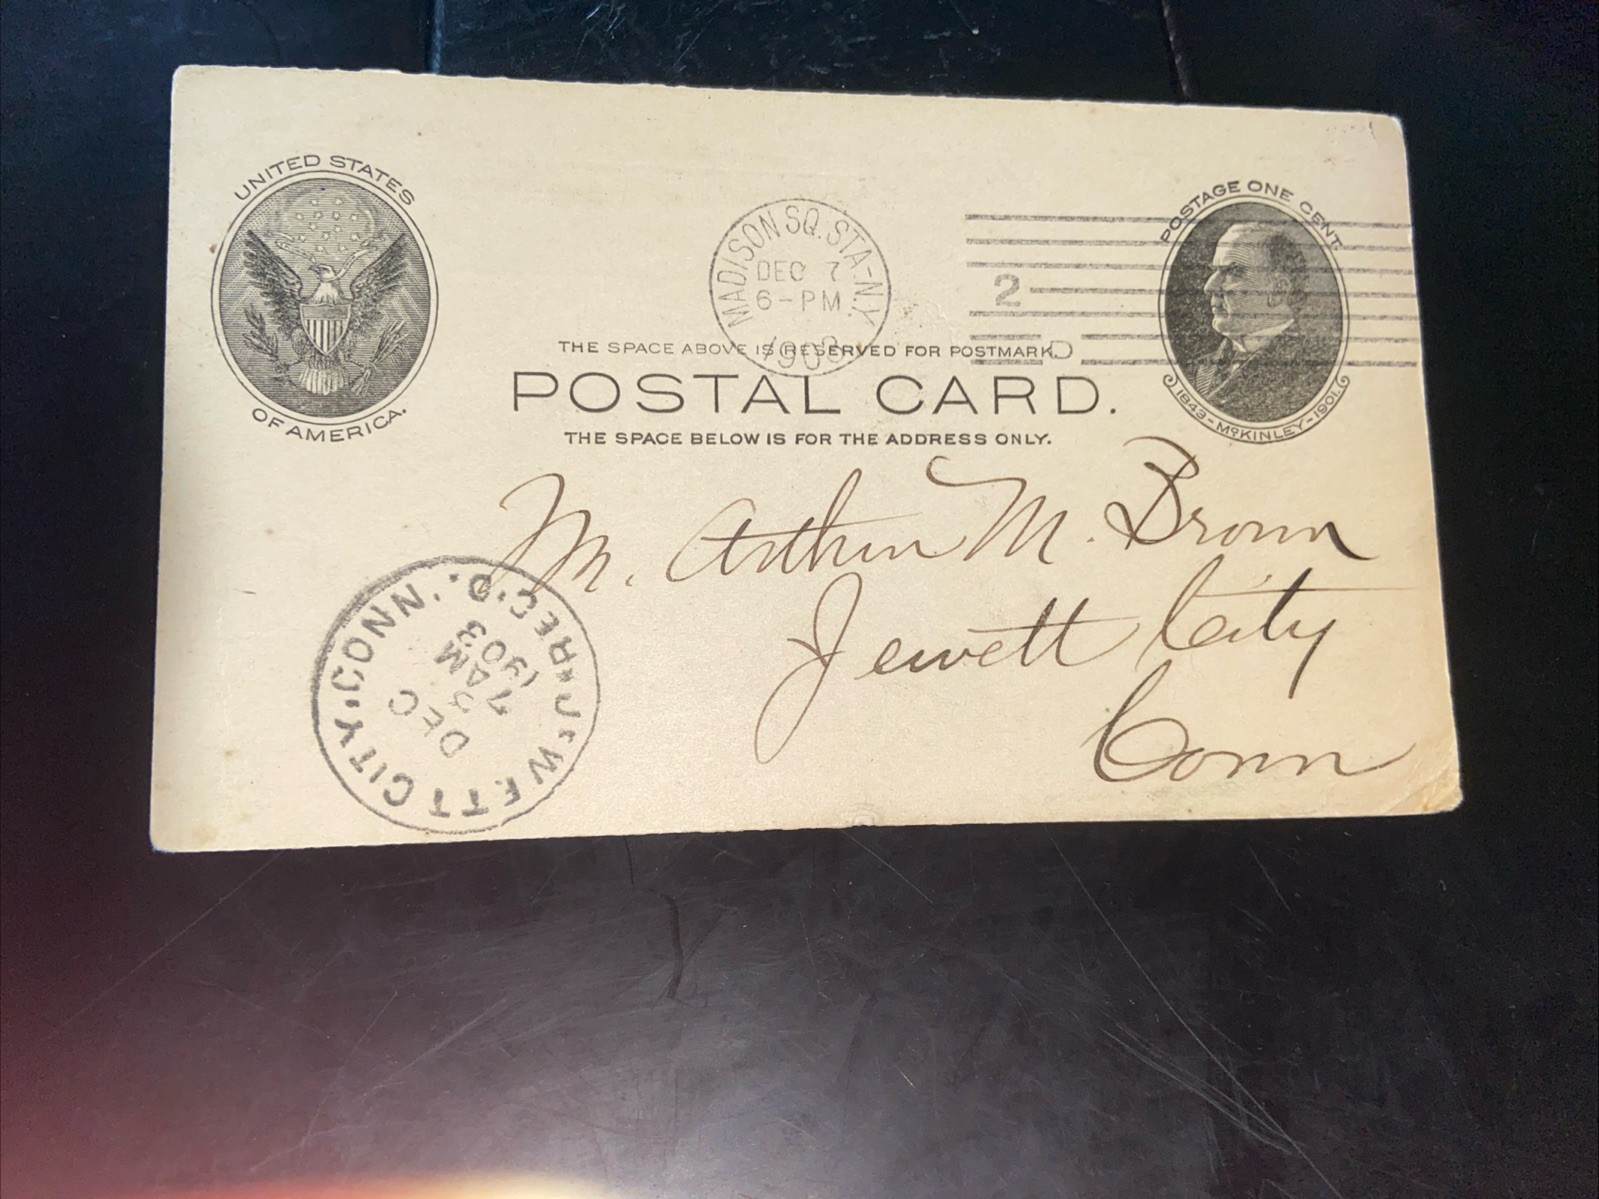 UNITED STATES
OF AMERICA.
MADISON SQ. STA-N.Y.
DEC 7
6-PM
1903
2
D
POSTAGE ONE CENT.
1843-McKINLEY-1901.
THE SPACE ABOVE IS RESERVED FOR POSTMARK.
POSTAL CARD.
THE SPACE BELOW IS FOR THE ADDRESS ONLY.
M. Arthur M. Brown
Jewett City
Conn
JEWETT CITY. CONN. REC'D.
DEC
7 AM
1903